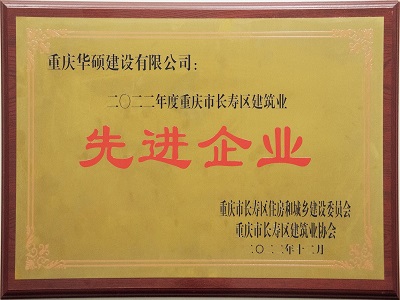 重庆华硕建设有限公司：
二〇二二年度重庆市长寿区建筑业
先进企业
重庆市长寿区住房和城乡建设委员会
重庆市长寿区建筑业协会
二〇二三年十二月